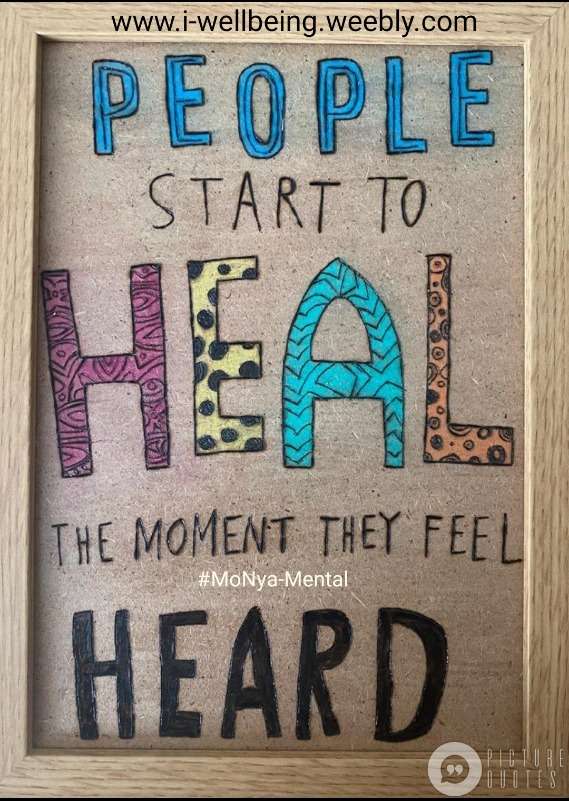 www.i-wellbeing.weebly.com
PEOPLE
START TO
HEAL
THE MOMENT THEY FEEL
#MoNya-Mental
HEARD
PICTURE
QUOTES